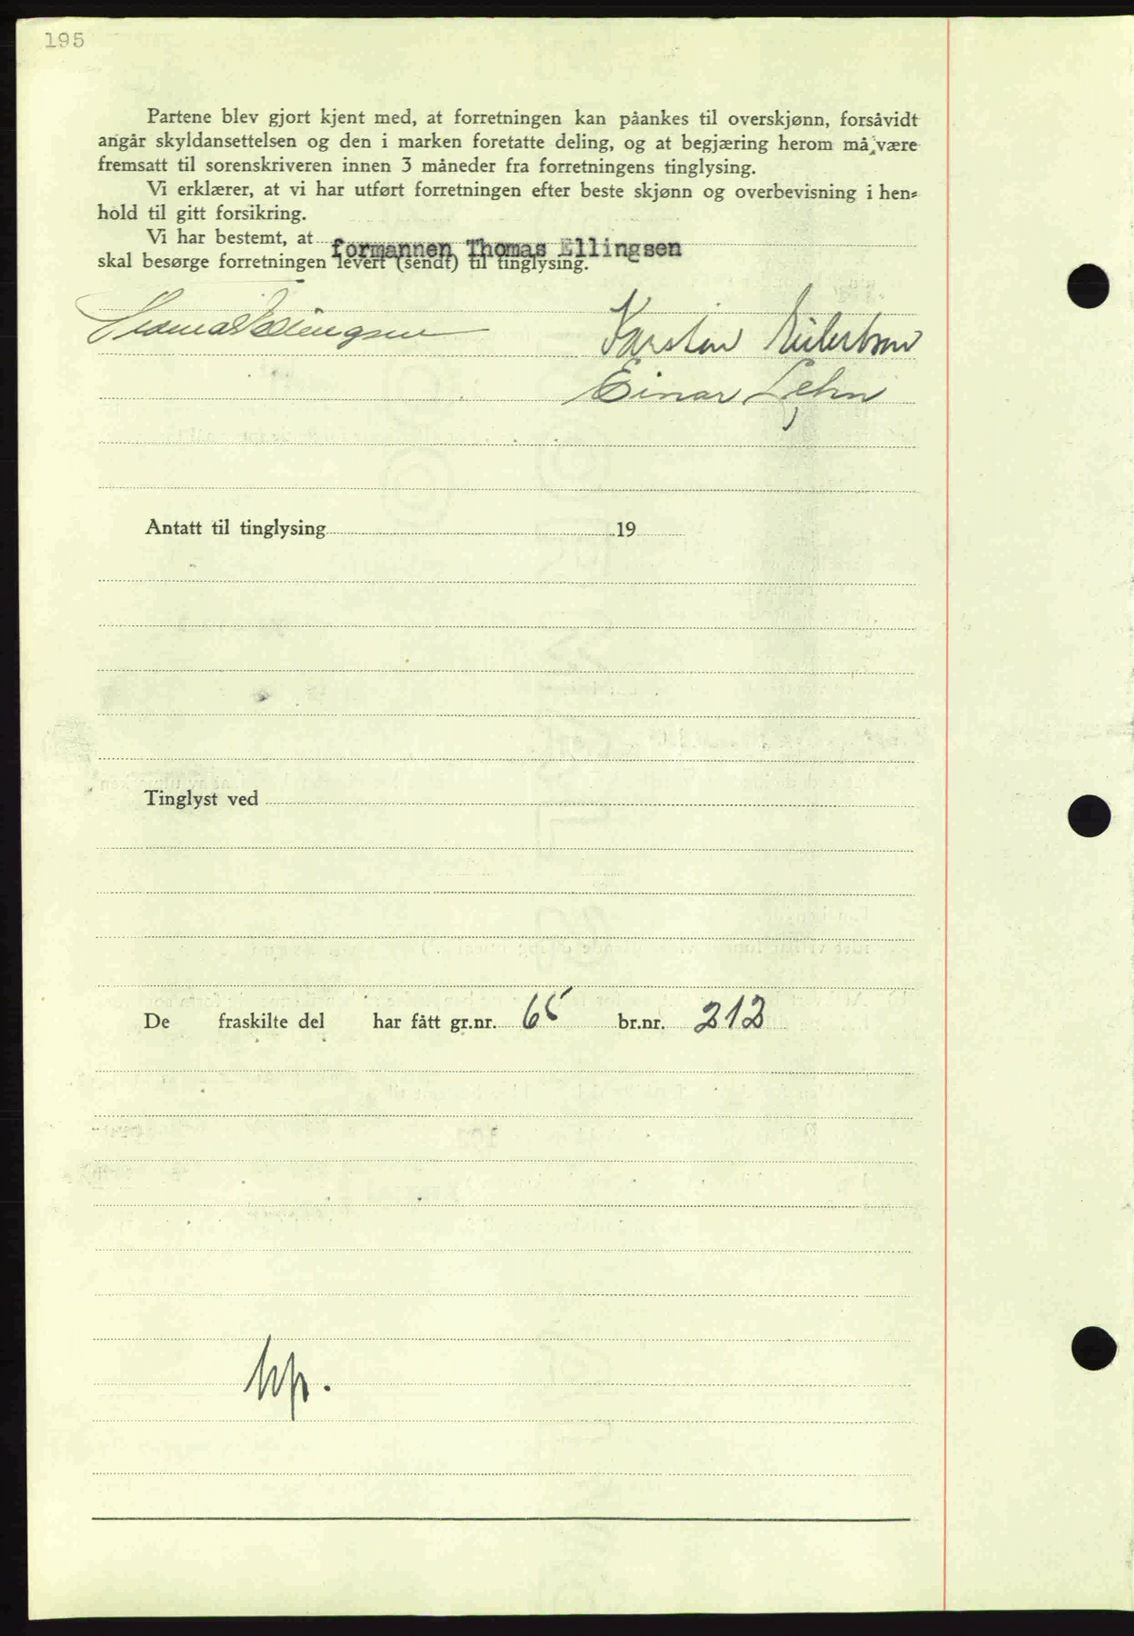 195
Partene blev gjort kjent med, at forretningen kan påankes til overskjønn, forsåvidt
angår skyldansettelsen og den i marken foretatte deling, og at begjæring herom må være
fremsatt til sorenskriveren innen 3 måneder fra forretningens tinglysing.
Vi erklærer, at vi har utført forretningen efter beste skjønn og overbevisning i hen-
hold til gitt forsikring.
Vi har bestemt, at formannen Thomas Ellingsen
skal besørge forretningen levert (sendt) til tinglysing.
Thomas Ellingsen Karstein Eilertsen
Einar Lehn
Antatt til tinglysing 19
Tinglyst ved
De fraskilte del har fått gr.nr. 65 br.nr. 212